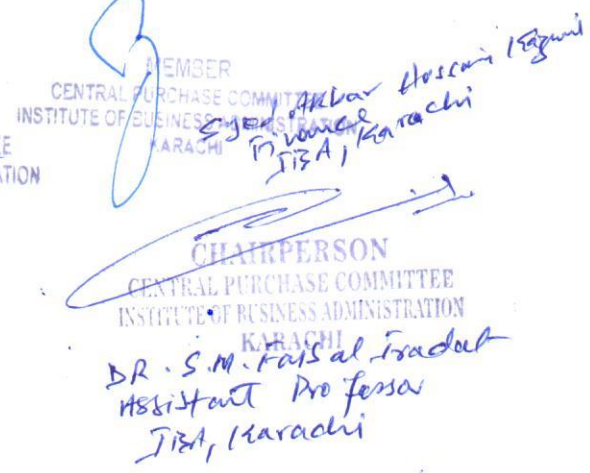 MEMBER
CENTRAL PURCHASE COMMITTEE
INSTITUTE OF BUSINESS ADMINISTRATION
KARACHI
E
TION
Syed Akbar Hossain Kazmi
Finance
IBA, Karachi
CHAIRPERSON
CENTRAL PURCHASE COMMITTEE
INSTITUTE OF BUSINESS ADMINISTRATION
KARACHI
DR. S.M. Faisal Iradat
Assistant Professor
IBA, Karachi